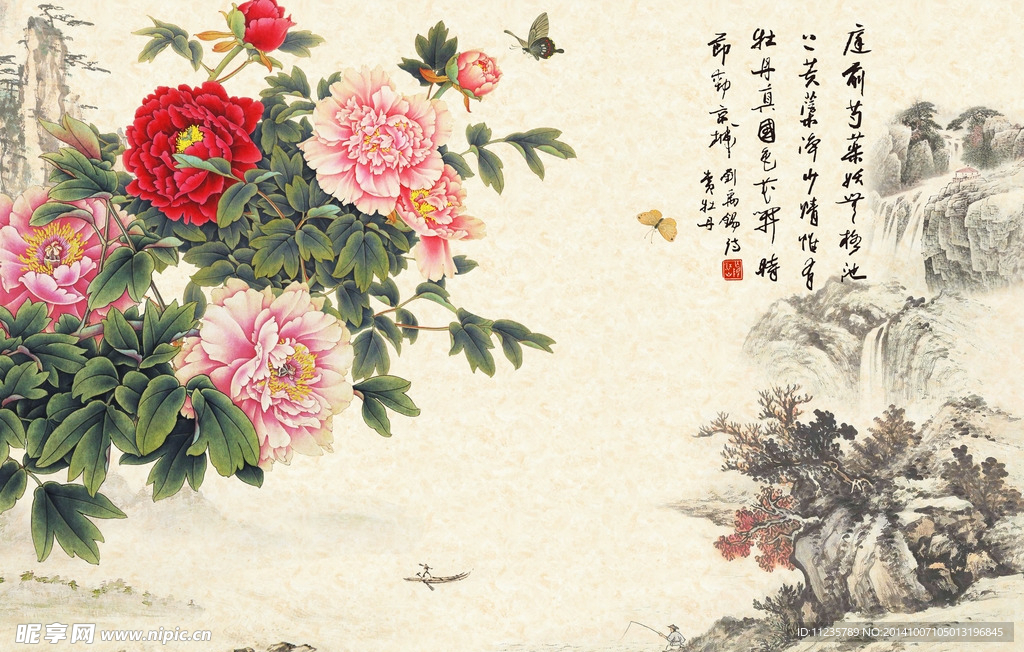 庭前芍藥妖無格池
上芙蕖淨少情惟有
牡丹真國色花開時
節動京城
劉禹錫詩
賞牡丹
昵享网 www.nipic.cn
ID:11235789 NO:20141007105013196845